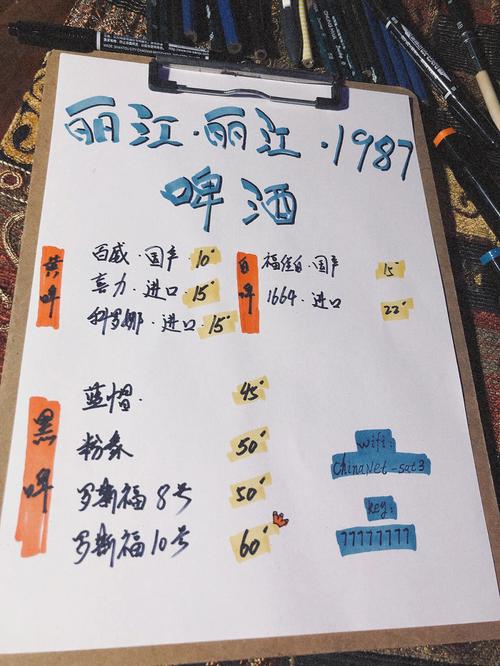 丽江·丽江·1987
啤酒
黄啤
百威·国产 10
喜力·进口 15
科罗娜·进口 15
白啤
福佳白·国产 15
1664·进口 22
黑啤
蓝帽· 45
粉象 50
罗斯福8号 50
罗斯福10号 60
wifi:
ChinaNet-sat3
key:
77777777